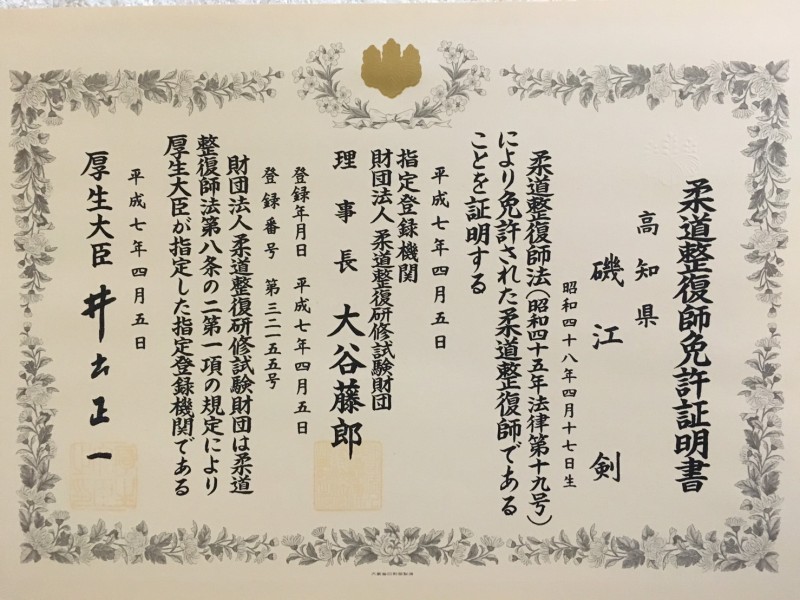 柔道整復師免許証明書
高知県
磯江剣
昭和四十八年四月十七日生
柔道整復師法(昭和四十五年法律第十九号)
により免許された柔道整復師である
ことを証明する
平成七年四月五日
指定登録機関
財団法人 柔道整復研修試験財団
理事長 大谷藤郎
登録年月日 平成七年四月五日
登録番号 第三二一五五号
財団法人柔道整復研修試験財団は柔道
整復師法第八条の二第一項の規定により
厚生大臣が指定した指定登録機関である
平成七年四月五日
厚生大臣 井出正一